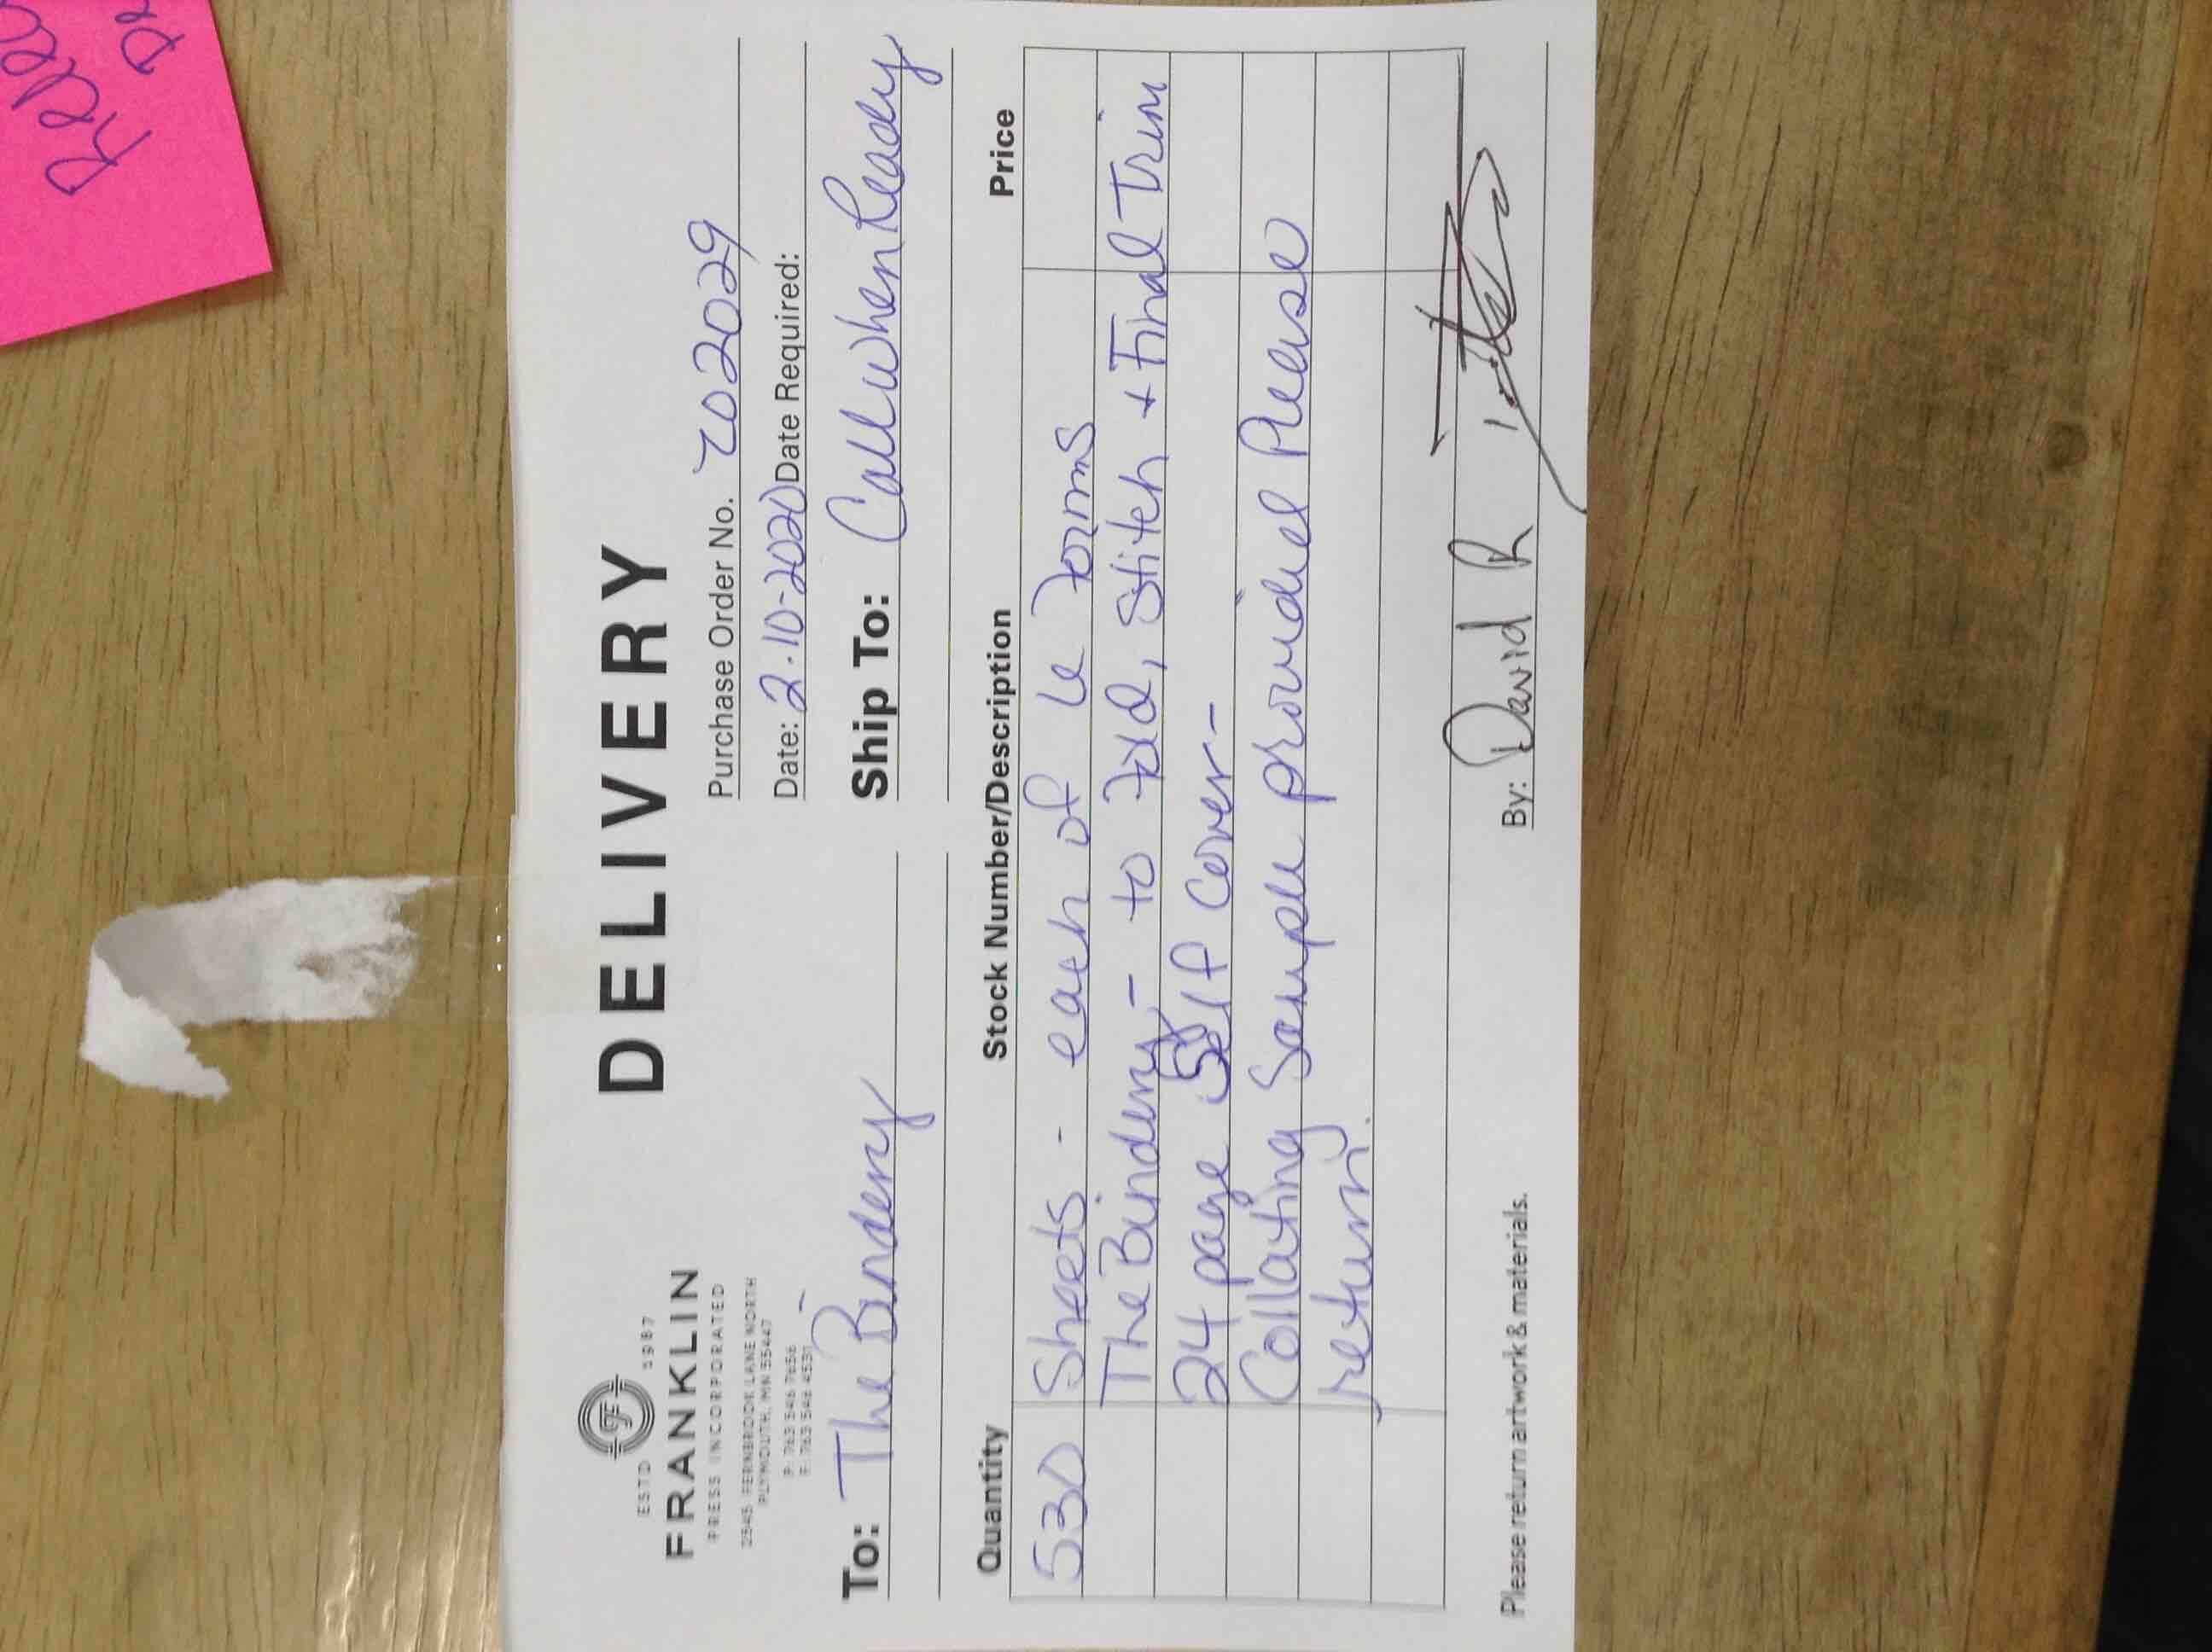 DELIVERY
ESTD 1987
FRANKLIN
PRESS INCORPORATED
2545 FERNBROOK LANE NORTH
PLYMOUTH, MN 55447
P: 763 546 7656
F: 763 546 4531
Purchase Order No. 202029
Date: 2-10-2020 Date Required:
To: The Bindery
Ship To: Call when Ready
Quantity Stock Number/Description Price
530 Sheets - each of 6 forms
The Bindery - to fold, Stitch + Final Trim
24 page Self Cover -
Collating Sample provided Please
return.
Please return artwork & materials.
By: David R